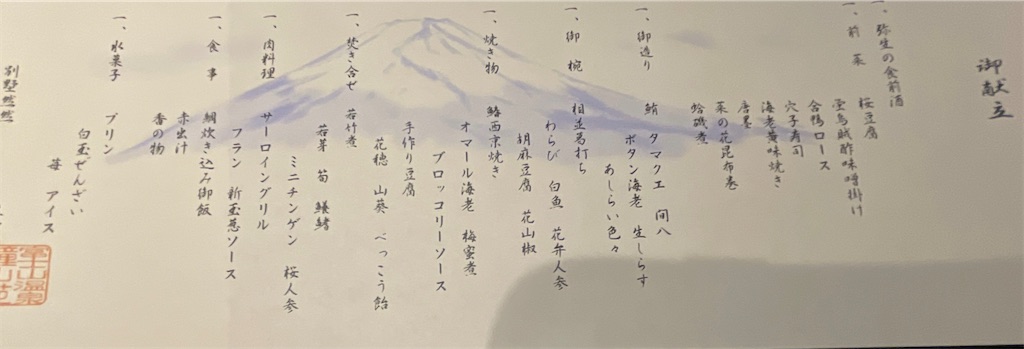 御献立
一、弥生の食前酒
一、前菜
桜豆腐
蛍烏賊酢味噌掛け
合鴨ロース
穴子寿司
海老黄味焼き
唐墨
菜の花昆布巻
蛤磯煮
一、御造り
鮪 タマクエ 間八
ボタン海老 生しらす
あしらい色々
一、御椀
相並葛打ち
わらび 白魚 花弁人参
胡麻豆腐 花山椒
一、焼き物
鰆西京焼き
オマール海老 梅蜜煮
ブロッコリーソース
一、焚き合せ
若竹煮
手作り豆腐
花穂 山葵 べっこう飴
若芽 筍
一、肉料理
サーロイングリル
ミニチンゲン 桜人参
フラン 新玉葱ソース
一、食事
鯛炊き込み御飯
赤出汁
香の物
一、水菓子
プリン
白玉ぜんざい
苺 アイス
別墅然然